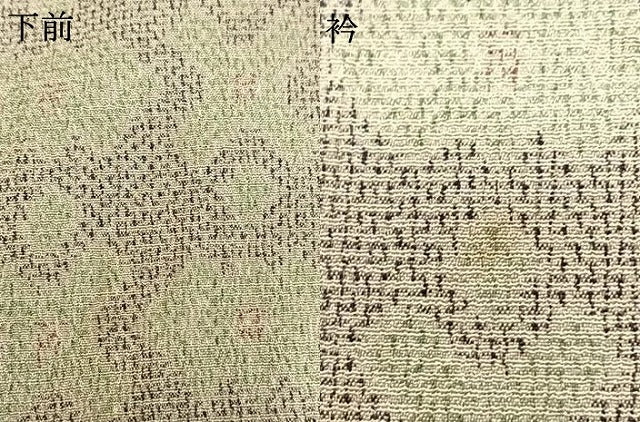 下前
衿